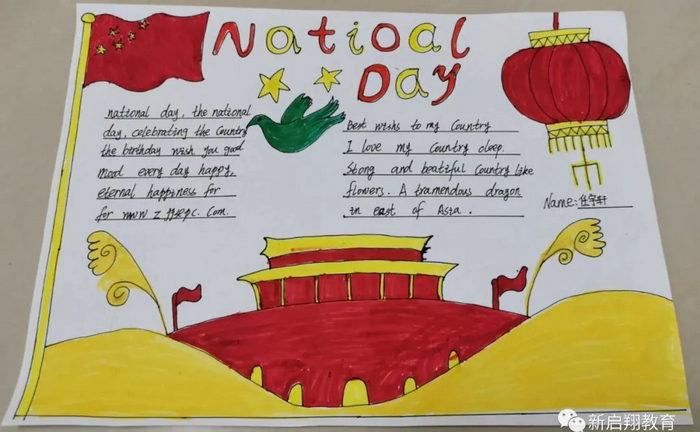 Natioal
Day
national day, the national
day, celebrating the Country
the birthday wish you good
mood every day happy,
eternal happiness for
for www z jjsepc. Com.
Best wishs to my Country
I love my Country deep.
Stong and beatiful Country like
flowers. A tramendous dragon
in east of Asia.
Name: 任宇轩
新启翔教育